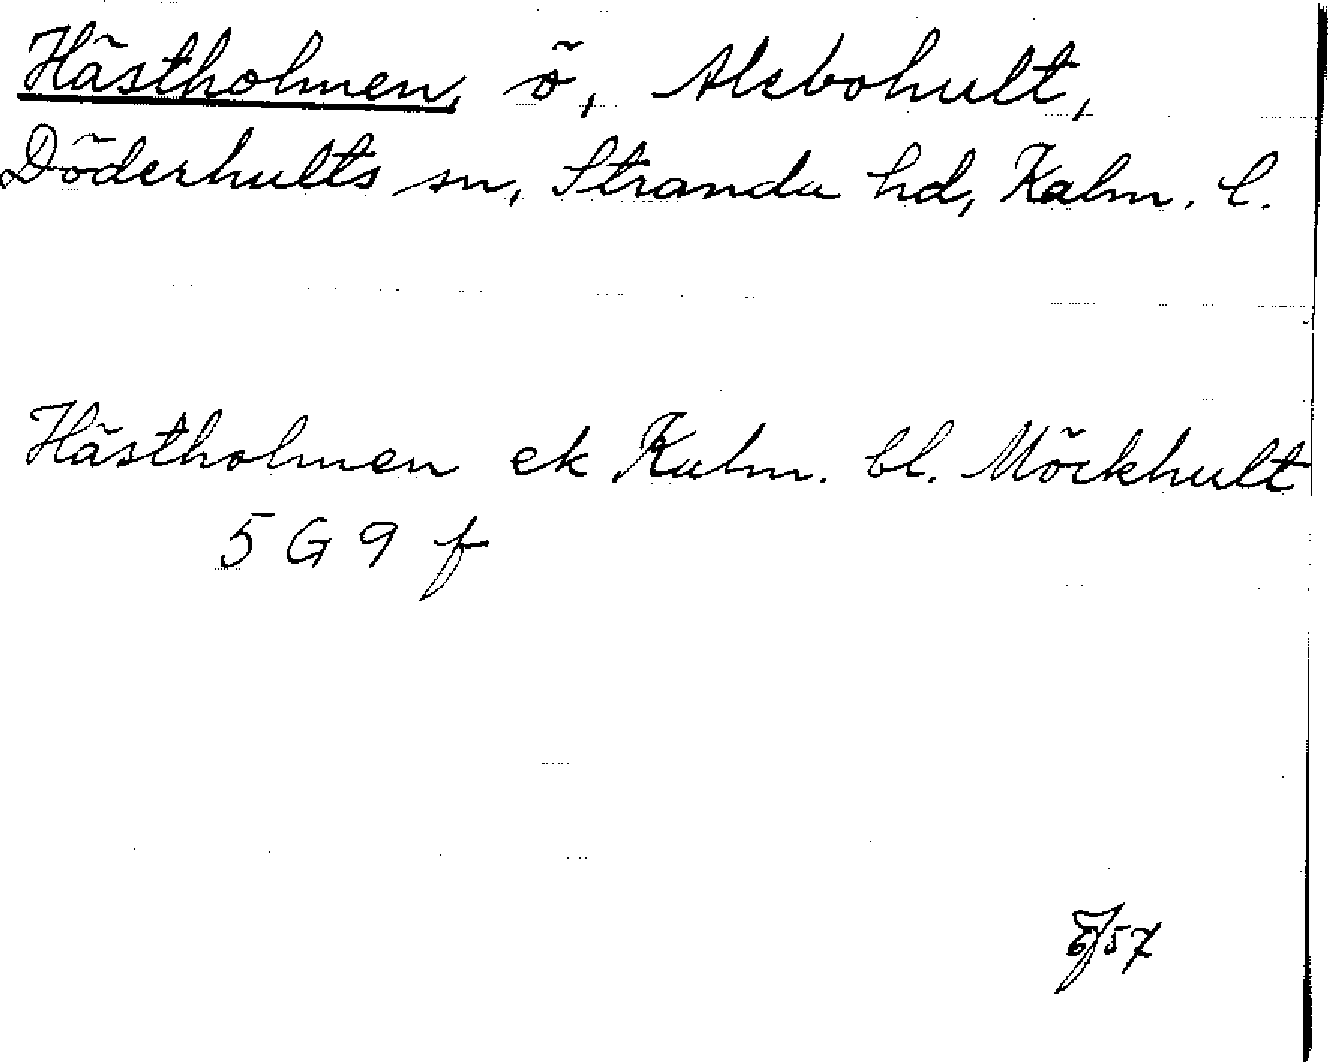 Hästholmen, ö, Alsbohult,
Döderhults sn, Stranda hd, Kalm. l.
Hästholmen ek Kalm. bl. Möckhult
5 G 9 f